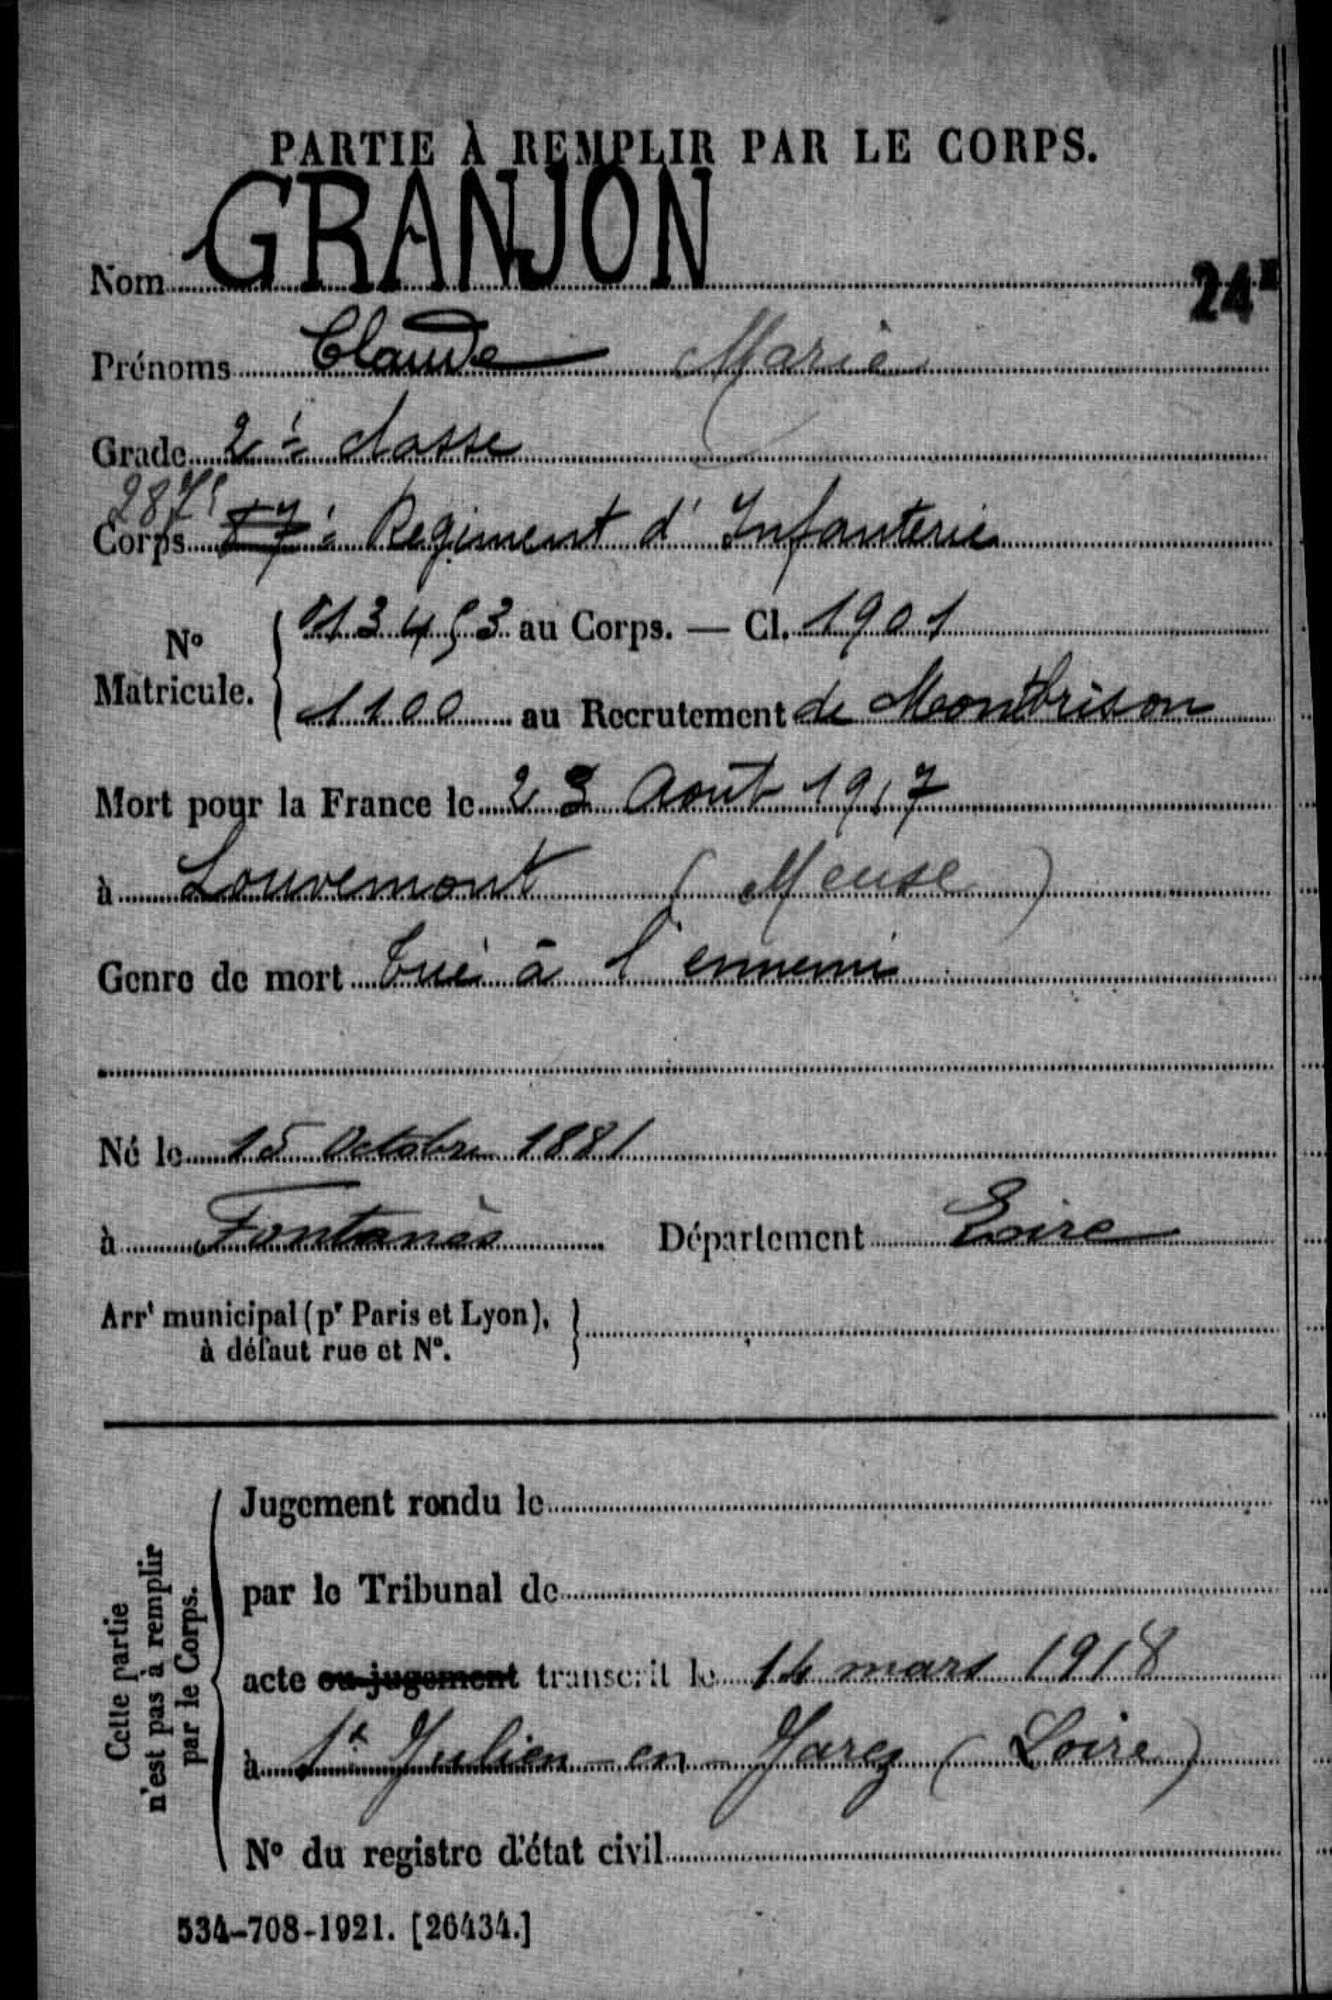 PARTIE À REMPLIR PAR LE CORPS.
Nom GRANJON
24
Prénoms Claude Marie
Grade 2è classe
287è
Corps 87è Regiment d'Infanterie
N° Matricule. 013453 au Corps. — Cl. 1901
1100 au Recrutement de Montbrison
Mort pour la France le 23 Août 1917
à Louvemont (Meuse)
Genre de mort Tué à l'ennemi
Né le 15 Octobre 1881
à Fontanès Département Loire
Arrt municipal (pr Paris et Lyon),
à défaut rue et N°.
Cette partie
n'est pas à remplir
par le Corps.
Jugement rendu le
par le Tribunal de
acte ou jugement transcrit le 14 mars 1918
à St Julien-en-Jarez (Loire)
N° du registre d'état civil
534-708-1921. [26434.]